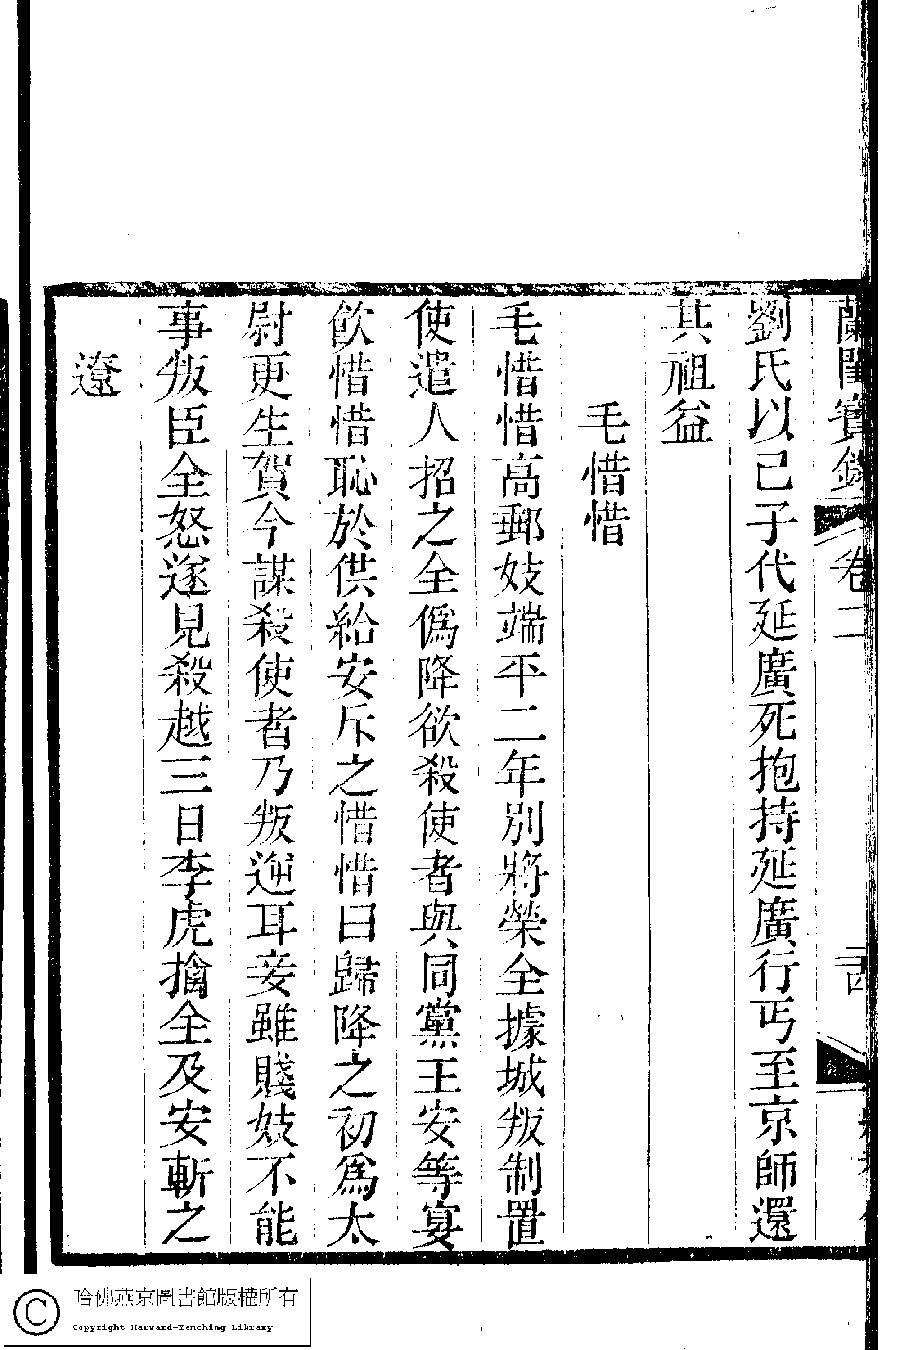 蘭閨寶錄 卷二 十四
劉氏以己子代延廣死抱持延廣行丐至京師還
其祖益
毛惜惜
毛惜惜高郵妓端平二年別將榮全據城叛制置
使遣人招之全僞降欲殺使者與同黨王安等宴
飮惜惜恥於供給安斥之惜惜曰歸降之初爲太
尉更生賀今謀殺使者乃叛逆耳妾雖賤妓不能
事叛臣全怒遂見殺越三日李虎擒全及安斬之
遼
哈佛燕京圖書館版權所有
Copyright Harvard-Yenching Library